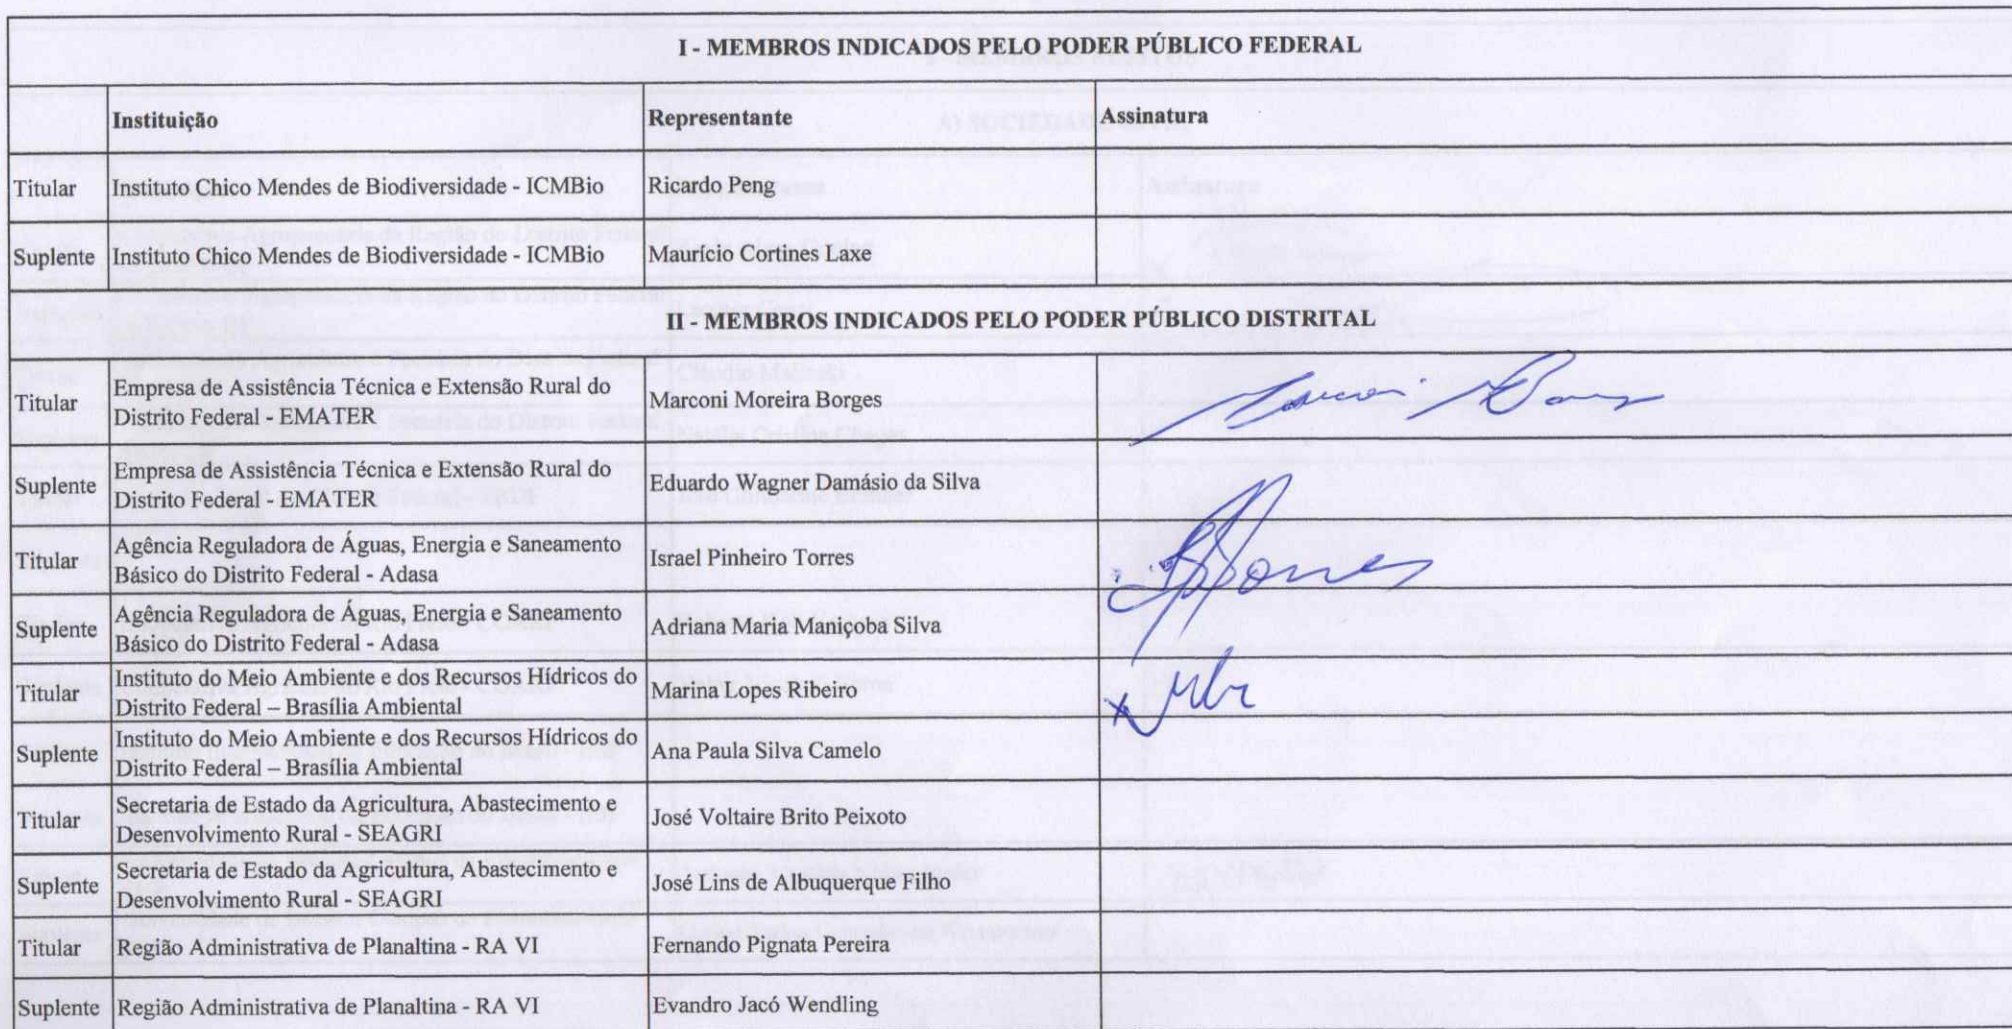 I - MEMBROS INDICADOS PELO PODER PÚBLICO FEDERAL
Instituição Representante Assinatura
Titular Instituto Chico Mendes de Biodiversidade - ICMBio Ricardo Peng
Suplente Instituto Chico Mendes de Biodiversidade - ICMBio Maurício Cortines Laxe
II - MEMBROS INDICADOS PELO PODER PÚBLICO DISTRITAL
Titular Empresa de Assistência Técnica e Extensão Rural do
Distrito Federal - EMATER Marconi Moreira Borges
Suplente Empresa de Assistência Técnica e Extensão Rural do
Distrito Federal - EMATER Eduardo Wagner Damásio da Silva
Titular Agência Reguladora de Águas, Energia e Saneamento
Básico do Distrito Federal - Adasa Israel Pinheiro Torres
Suplente Agência Reguladora de Águas, Energia e Saneamento
Básico do Distrito Federal - Adasa Adriana Maria Maniçoba Silva
Titular Instituto do Meio Ambiente e dos Recursos Hídricos do
Distrito Federal – Brasília Ambiental Marina Lopes Ribeiro
Suplente Instituto do Meio Ambiente e dos Recursos Hídricos do
Distrito Federal – Brasília Ambiental Ana Paula Silva Camelo
Titular Secretaria de Estado da Agricultura, Abastecimento e
Desenvolvimento Rural - SEAGRI José Voltaire Brito Peixoto
Suplente Secretaria de Estado da Agricultura, Abastecimento e
Desenvolvimento Rural - SEAGRI José Lins de Albuquerque Filho
Titular Região Administrativa de Planaltina - RA VI Fernando Pignata Pereira
Suplente Região Administrativa de Planaltina - RA VI Evandro Jacó Wendling